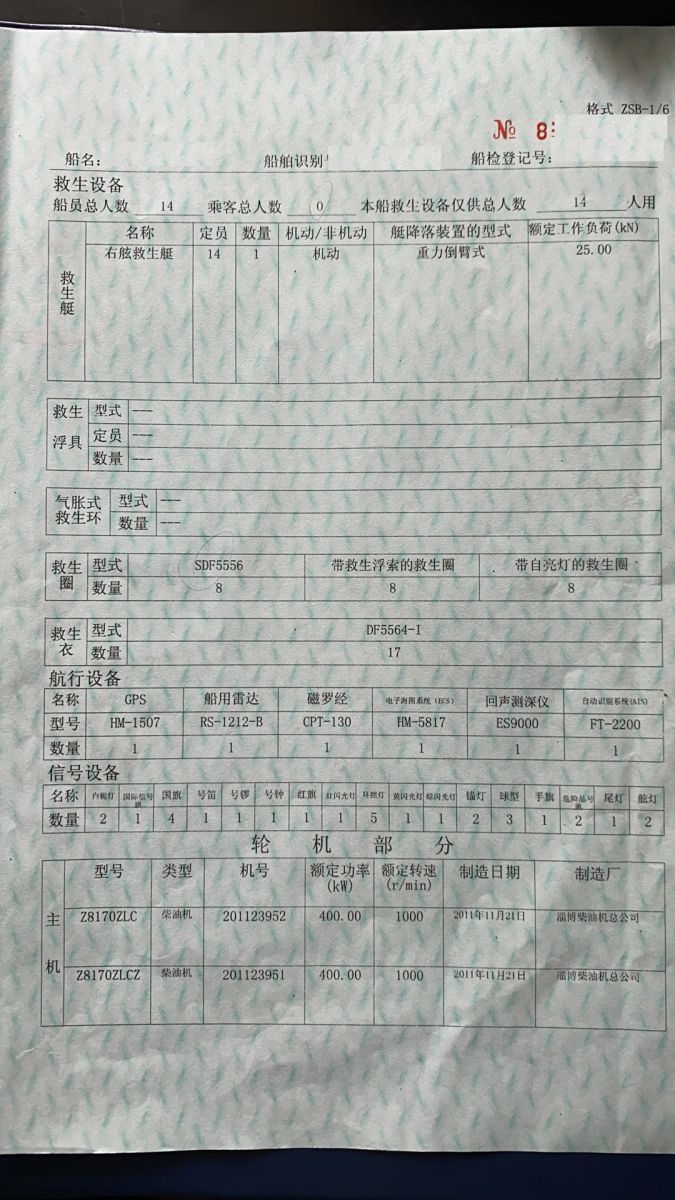 格式 ZSB-1/6
№ 8
船名： 船舶识别 船检登记号：
救生设备
船员总人数 14 乘客总人数 0 本船救生设备仅供总人数 14 人用
救生艇
名称 定员 数量 机动/非机动 艇降落装置的型式 额定工作负荷(kN)
右舷救生艇 14 1 机动 重力倒臂式 25.00
救生浮具
型式 ---
定员 ---
数量 ---
气胀式救生环
型式 ---
数量 ---
救生圈
型式 SDF5556 带救生浮索的救生圈 带自亮灯的救生圈
数量 8 8 8
救生衣
型式 DF5564-I
数量 17
航行设备
名称 GPS 船用雷达 磁罗经 电子海图系统(ECS) 回声测深仪 自动识别系统(AIS)
型号 HM-1507 RS-1212-B CPT-130 HM-5817 ES9000 FT-2200
数量 1 1 1 1 1 1
信号设备
名称 白桅灯 国际信号旗 国旗 号笛 号锣 号钟 红旗 红闪光灯 环照灯 黄闪光灯 绿闪光灯 锚灯 球型 手旗 危险品号旗 尾灯 舷灯
数量 2 1 4 1 1 1 1 1 5 1 1 2 3 1 2 1 2
轮机部分
主机
型号 类型 机号 额定功率(kW) 额定转速(r/min) 制造日期 制造厂
Z8170ZLC 柴油机 201123952 400.00 1000 2011年11月21日 淄博柴油机总公司
Z8170ZLCZ 柴油机 201123951 400.00 1000 2011年11月21日 淄博柴油机总公司